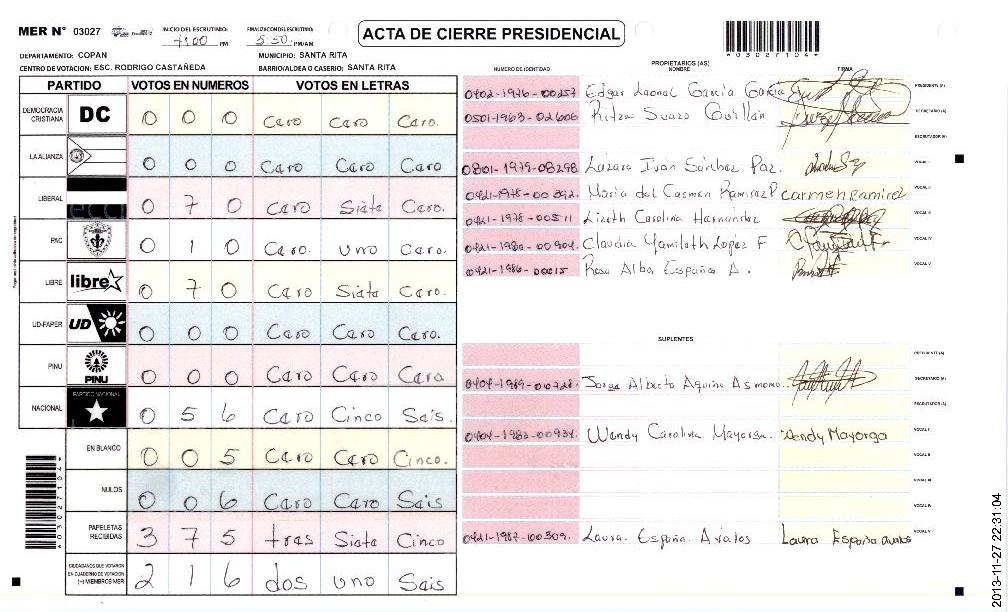 MER N° 03027
INICIO DEL ESCRUTINIO:
4:00 PM
FINALIZACION DEL ESCRUTINIO:
5:50 PM/AM
ACTA DE CIERRE PRESIDENCIAL
*03027104*
DEPARTAMENTO: COPAN
MUNICIPIO: SANTA RITA
CENTRO DE VOTACION: ESC. RODRIGO CASTAÑEDA
BARRIO/ALDEA O CASERIO: SANTA RITA
PARTIDO VOTOS EN NUMEROS VOTOS EN LETRAS
DEMOCRACIA CRISTIANA DC 0 0 0 Caro Caro Caro.
LA ALIANZA 0 0 0 Caro Caro Caro
LIBERAL 0 7 0 Caro Siata Caro.
PAC 0 1 0 Caro. uno Caro.
LIBRE libre 0 7 0 Caro Siata Caro.
UD-FAPER UD 0 0 0 Caro Caro Caro.
PINU PINU 0 0 0 Caro Caro Caro
NACIONAL PARTIDO NACIONAL 0 5 6 Caro Cinco Sais.
EN BLANCO 0 0 5 Caro Caro Cinco.
NULOS 0 0 6 Caro Caro Sais
PAPELETAS RECIBIDAS 3 7 5 tras Siata Cinco
CIUDADANOS QUE VOTARON EN CUADERNO DE VOTACION (+) MIEMBROS MER 2 1 6 dos uno Sais
*03027104*
PROPIETARIOS (AS)
NUMERO DE IDENTIDAD NOMBRE FIRMA
0402-1976-00257 Edgar Laonal García García PRESIDENTE (A)
0501-1963-02606 Ritza Suazo Guillán SECRETARIO (A)
ESCRUTADOR (A)
0801-1979-08298 Lázaro Ivan Sánchaz Paz. VOCAL I
0421-1978-00342 Maria dal Carman Ramiraz P Carmen Ramirez VOCAL II
0421-1978-00511 Lizath Carolina Harnandaz VOCAL III
0421-1980-00904 Claudia Yamilath Lopaz F VOCAL IV
0421-1986-00015 Rosa Alba España A. VOCAL V
SUPLENTES
PRESIDENTE (A)
0404-1989-00728. Jorga Alberto Aquino Asmono.. SECRETARIO (A)
ESCRUTADOR (A)
0404-1982-00934. Wandy Carolina Mayorga. Wendy Mayorga VOCAL I
VOCAL II
VOCAL III
VOCAL IV
0421-1987-00309. Laura. España. Avalos Laura España Avalos VOCAL V
2013-11-27 22:31:04